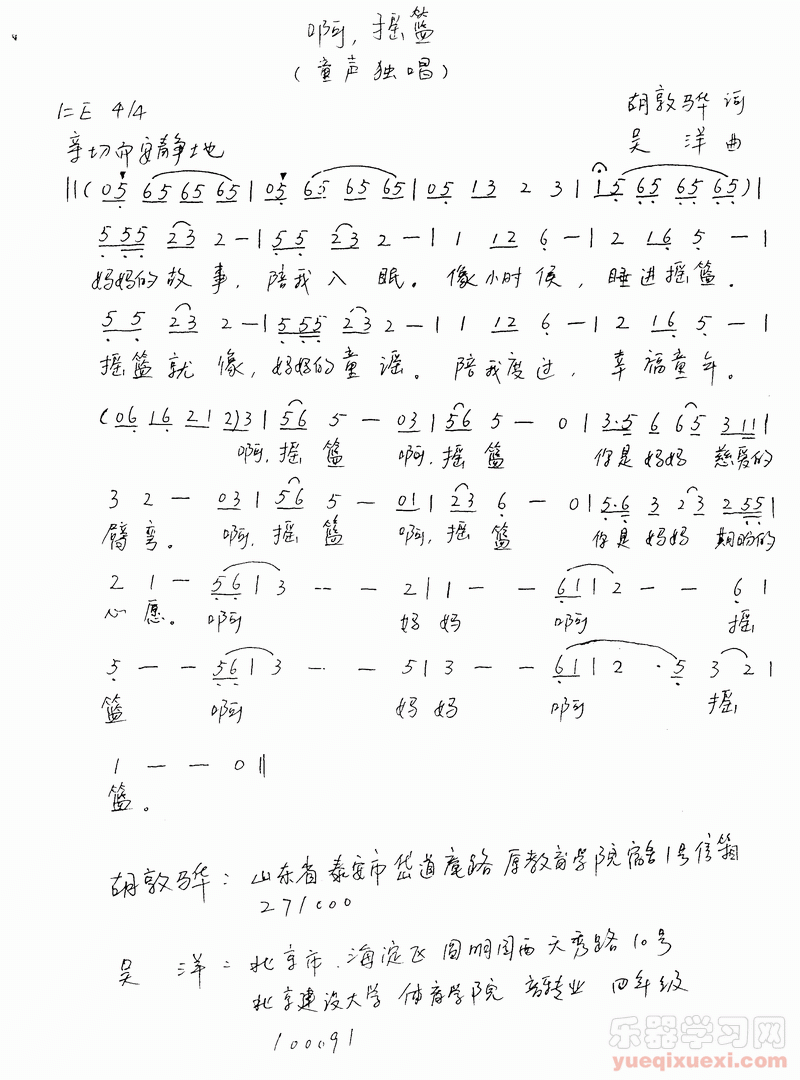 啊，摇篮
（童声独唱）
1=E 4/4
胡敦骅 词
亲切而安静地
吴 洋 曲
||(05 65 65 65|05 65 65 65|05 13 2 3|15 65 65 65)|
5 55 23 2 - |55 23 2 - |1 12 6 - |2 16 5 - |
妈妈的故事，陪我入眠。像小时候，睡进摇篮。
5 5 23 2 - |5 55 23 2 - |1 12 6 - |2 16 5 - |
摇篮就像，妈妈的童谣。陪我度过，幸福童年。
(06 16 21 2)3|56 5 - 03|56 5 - 0|3·5 6 65 3 11|
啊，摇篮 啊，摇篮 你是妈妈 慈爱的
3 2 - 03|56 5 - 01|23 6 - 0|5·6 3 23 2 55|
臂弯。 啊，摇篮 啊，摇篮 你是妈妈 期盼的
2 1 - 561 3 - - 2|1 - - 611 2 - - 6|
心愿。 啊 妈妈 啊 摇
5 - - 561 3 - - 5|3 - - 61|2 · 5 3 2|
篮 啊 妈妈 啊 摇
1 - - 0||
篮。
胡敦骅：山东省泰安市岱道庵路原教育学院宿舍1号信箱
271000
吴 洋：北京市.海淀区 圆明园西 天秀路10号
北京建设大学 体育学院 音专业 四年级
100091
乐器学习网
yueqixuexi.com